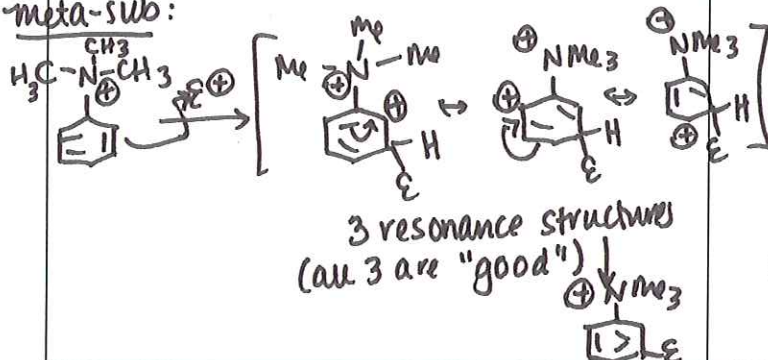 meta-sub:
CH3
H3C-N-CH3
⊕
ε⊕
Me
Me N-Me
⊕
⊕
H
ε
↔
⊕
NMe3
⊕
H
ε
↔
⊕
NMe3
H
⊕
ε
3 resonance structures
(all 3 are "good")
⊕NMe3
ε